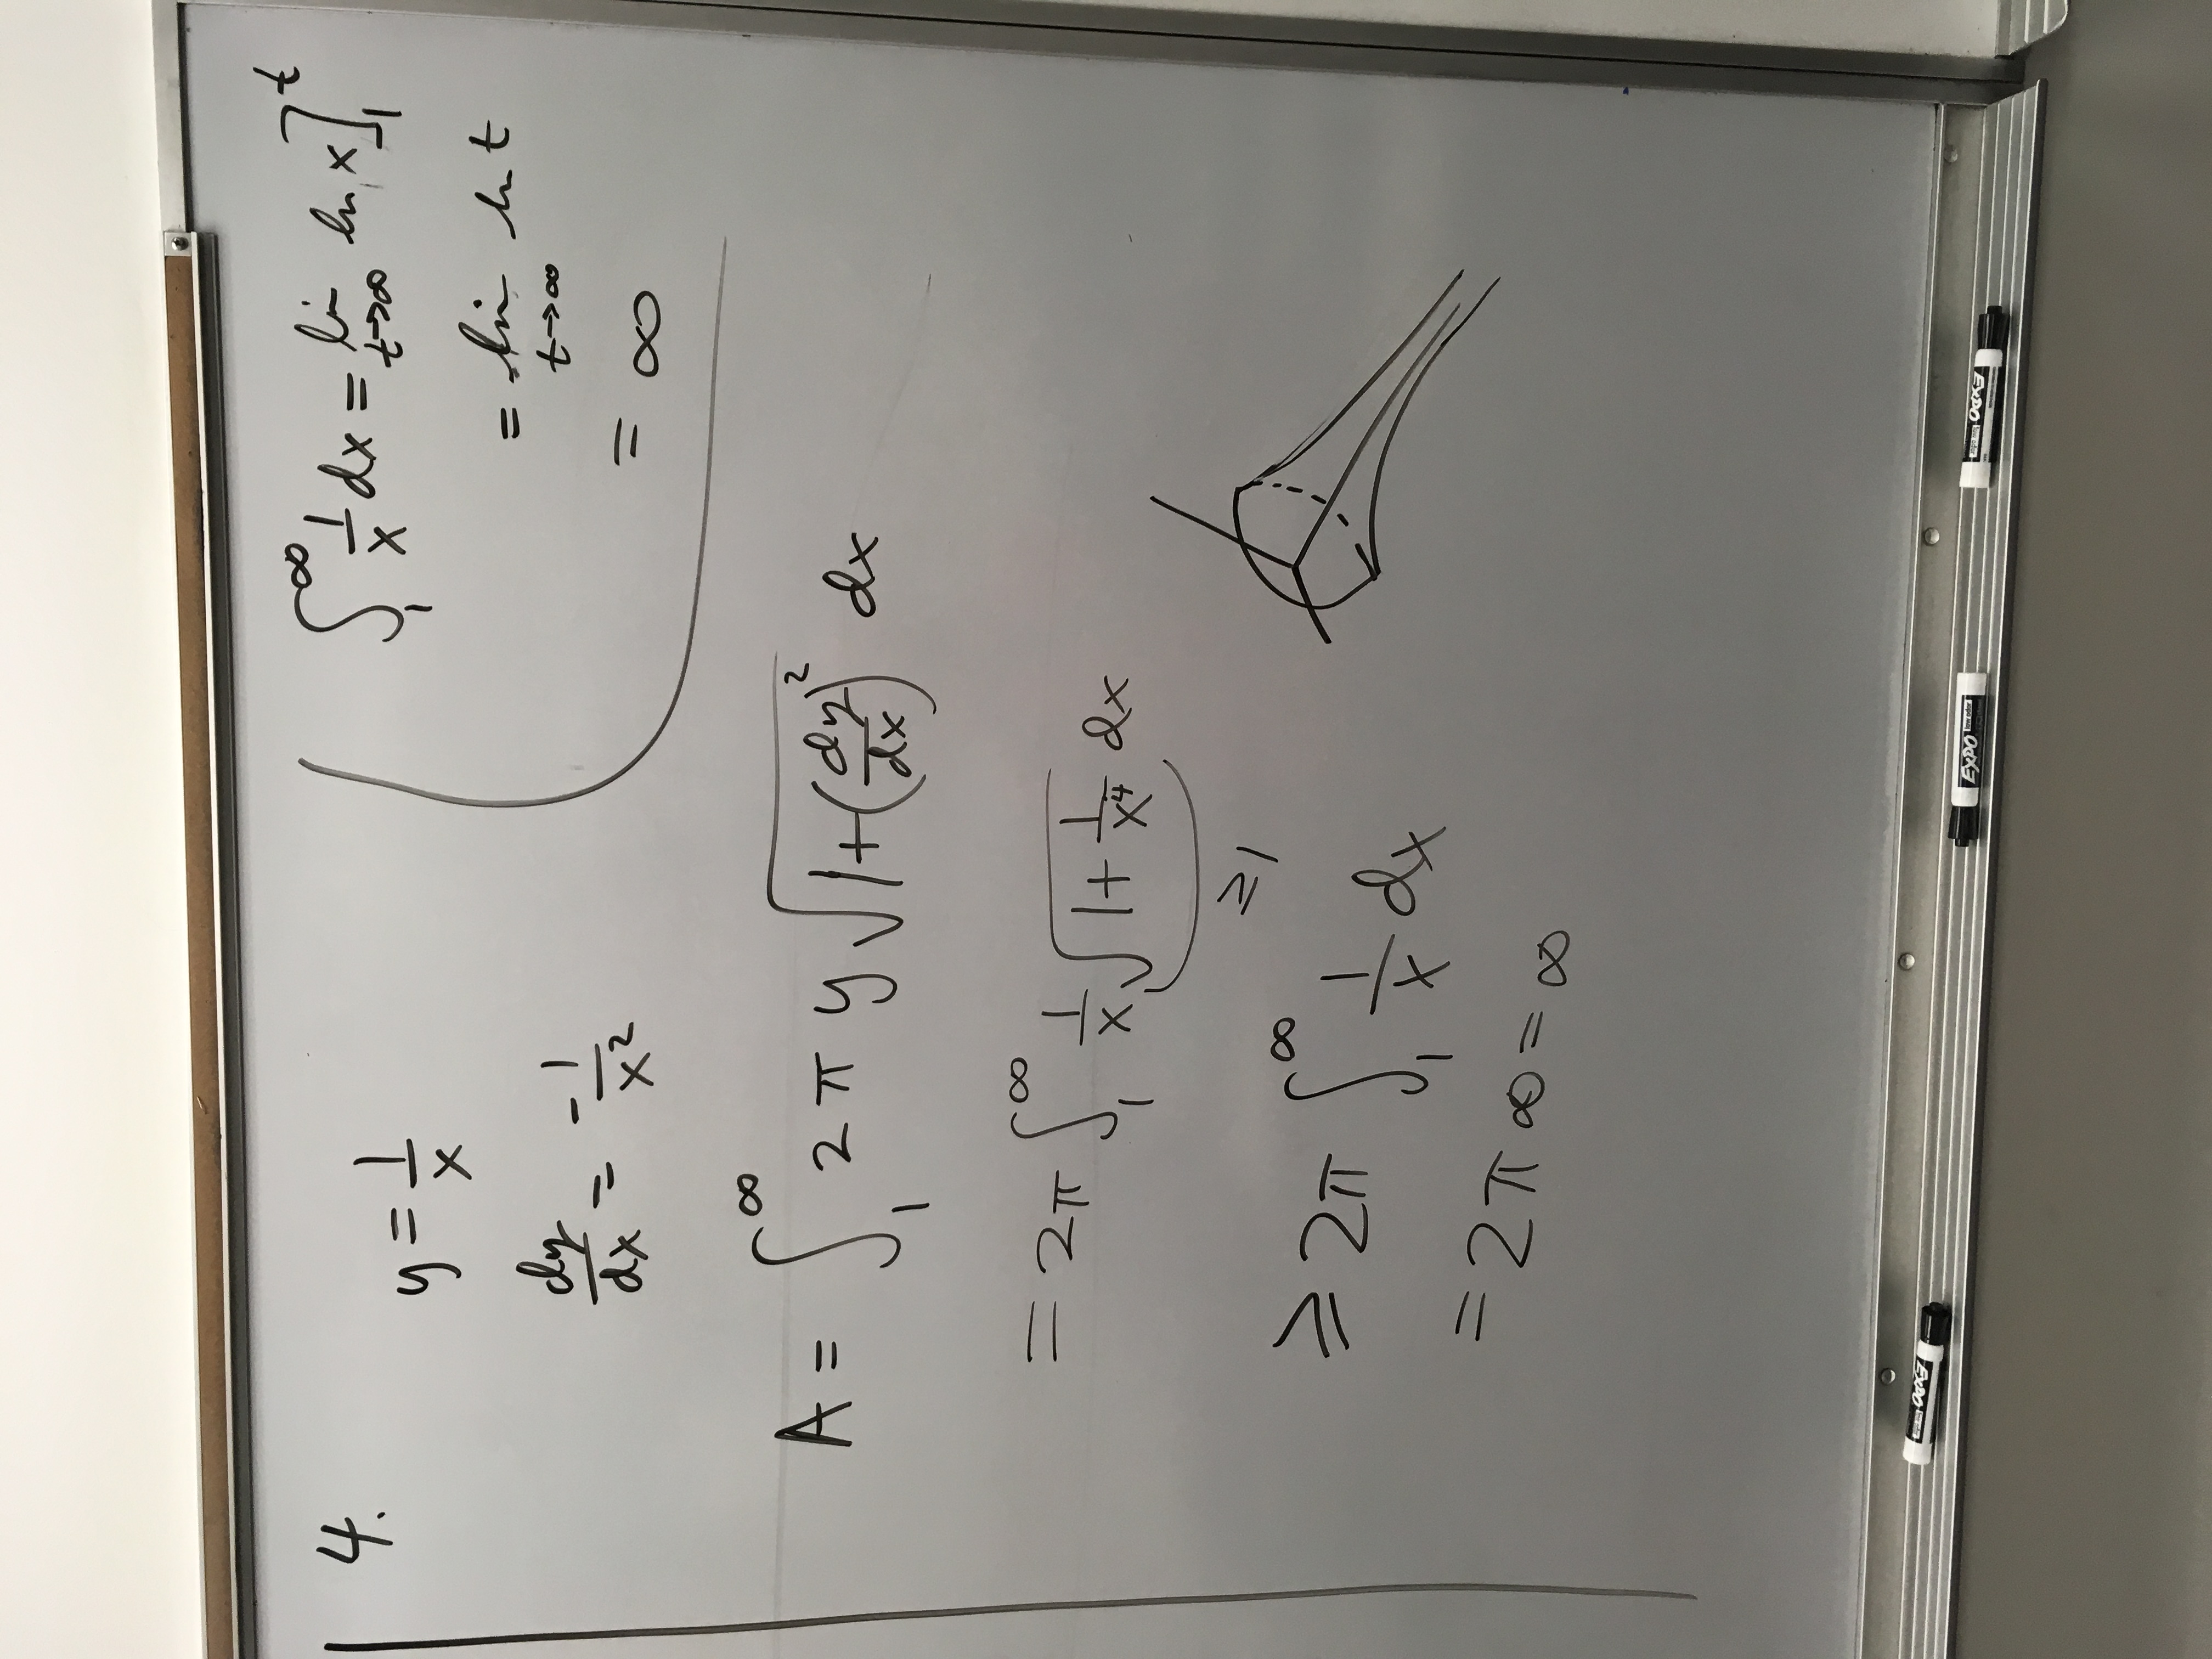 4.
y = 1/x
dy/dx = -1/x²
∫₁^∞ 1/x dx = lim t→∞ ln x]₁^t
= lim t→∞ ln t
= ∞
A = ∫₁^∞ 2π y √(1+(dy/dx)²) dx
= 2π ∫₁^∞ 1/x √(1+1/x⁴) dx
≥1
≥ 2π ∫₁^∞ 1/x dx
= 2π ∞ = ∞
EXPO
EXPO low odor
EXPO